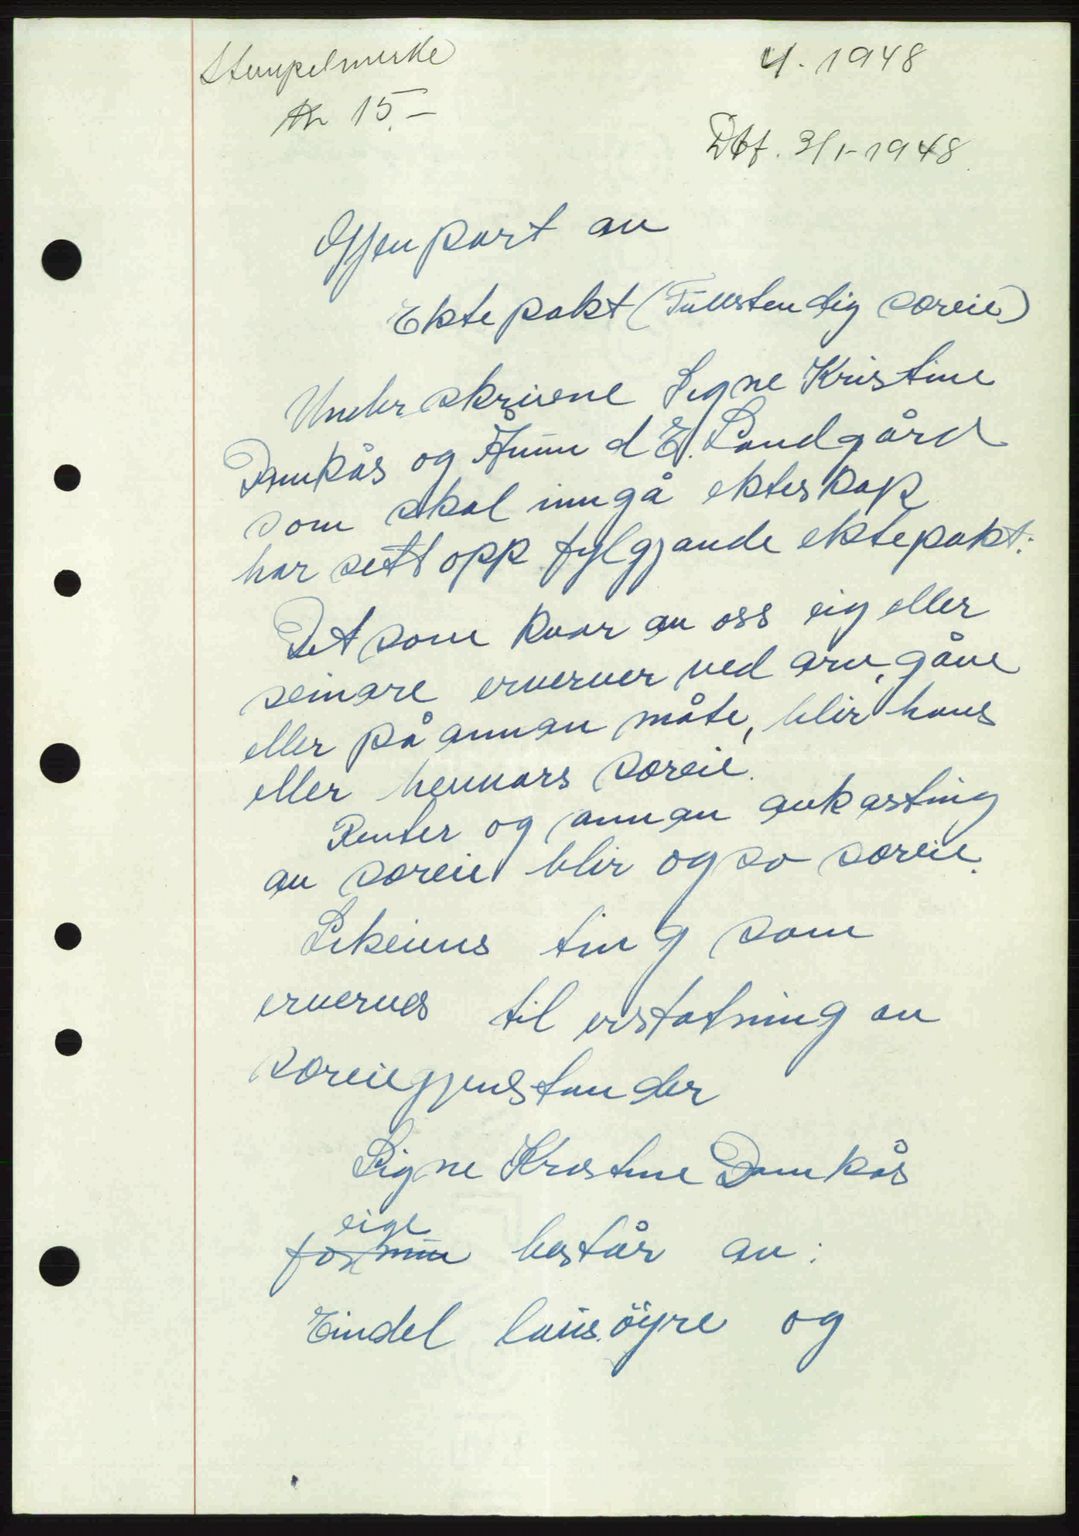 Stempelmerke
Kr 15.-
4. 1948
Dbf. 3/1-1948
Gjenpart av
Ektepakt (Fullstendig særeie)
Underskrivne Signe Kristine
Damkås og Åmund E. Sandgård
som skal inngå ekteskap
har sett opp fylgjande ektepakt:
Det som kvar av oss eig eller
seinare erverver ved arv, gåve
eller på annan måte, blir hans
eller hennars særeie.
Renter og annan avkasting
av særeie blir og so særeie.
Likeiens ting som
erverves til erstatning av
særeiegjenstander
Signe Kristine Damkås
eige
formue består av:
Eindel lausøyre og